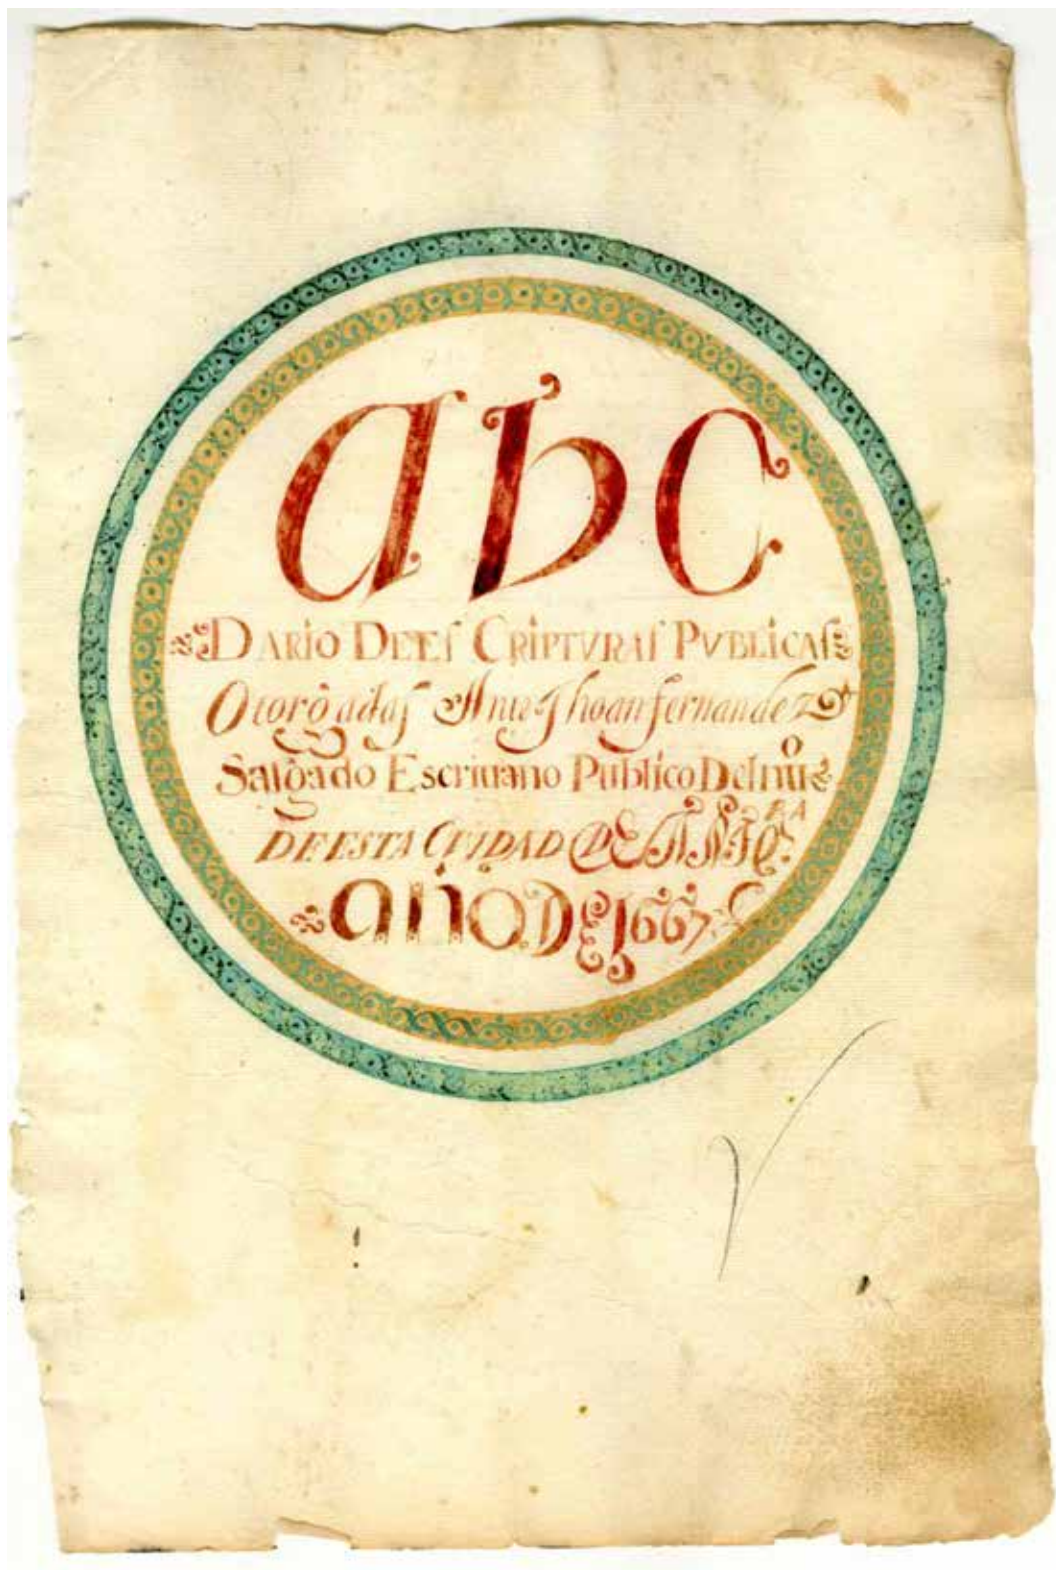 abc
DARIO DEESCRIPTVRAS PVBLICAS
Otorgadas Ante Jhoan fernandez
Salgado Escriuano Publico Delnuo
DE ESTA CIVDAD DE
año DE 1667